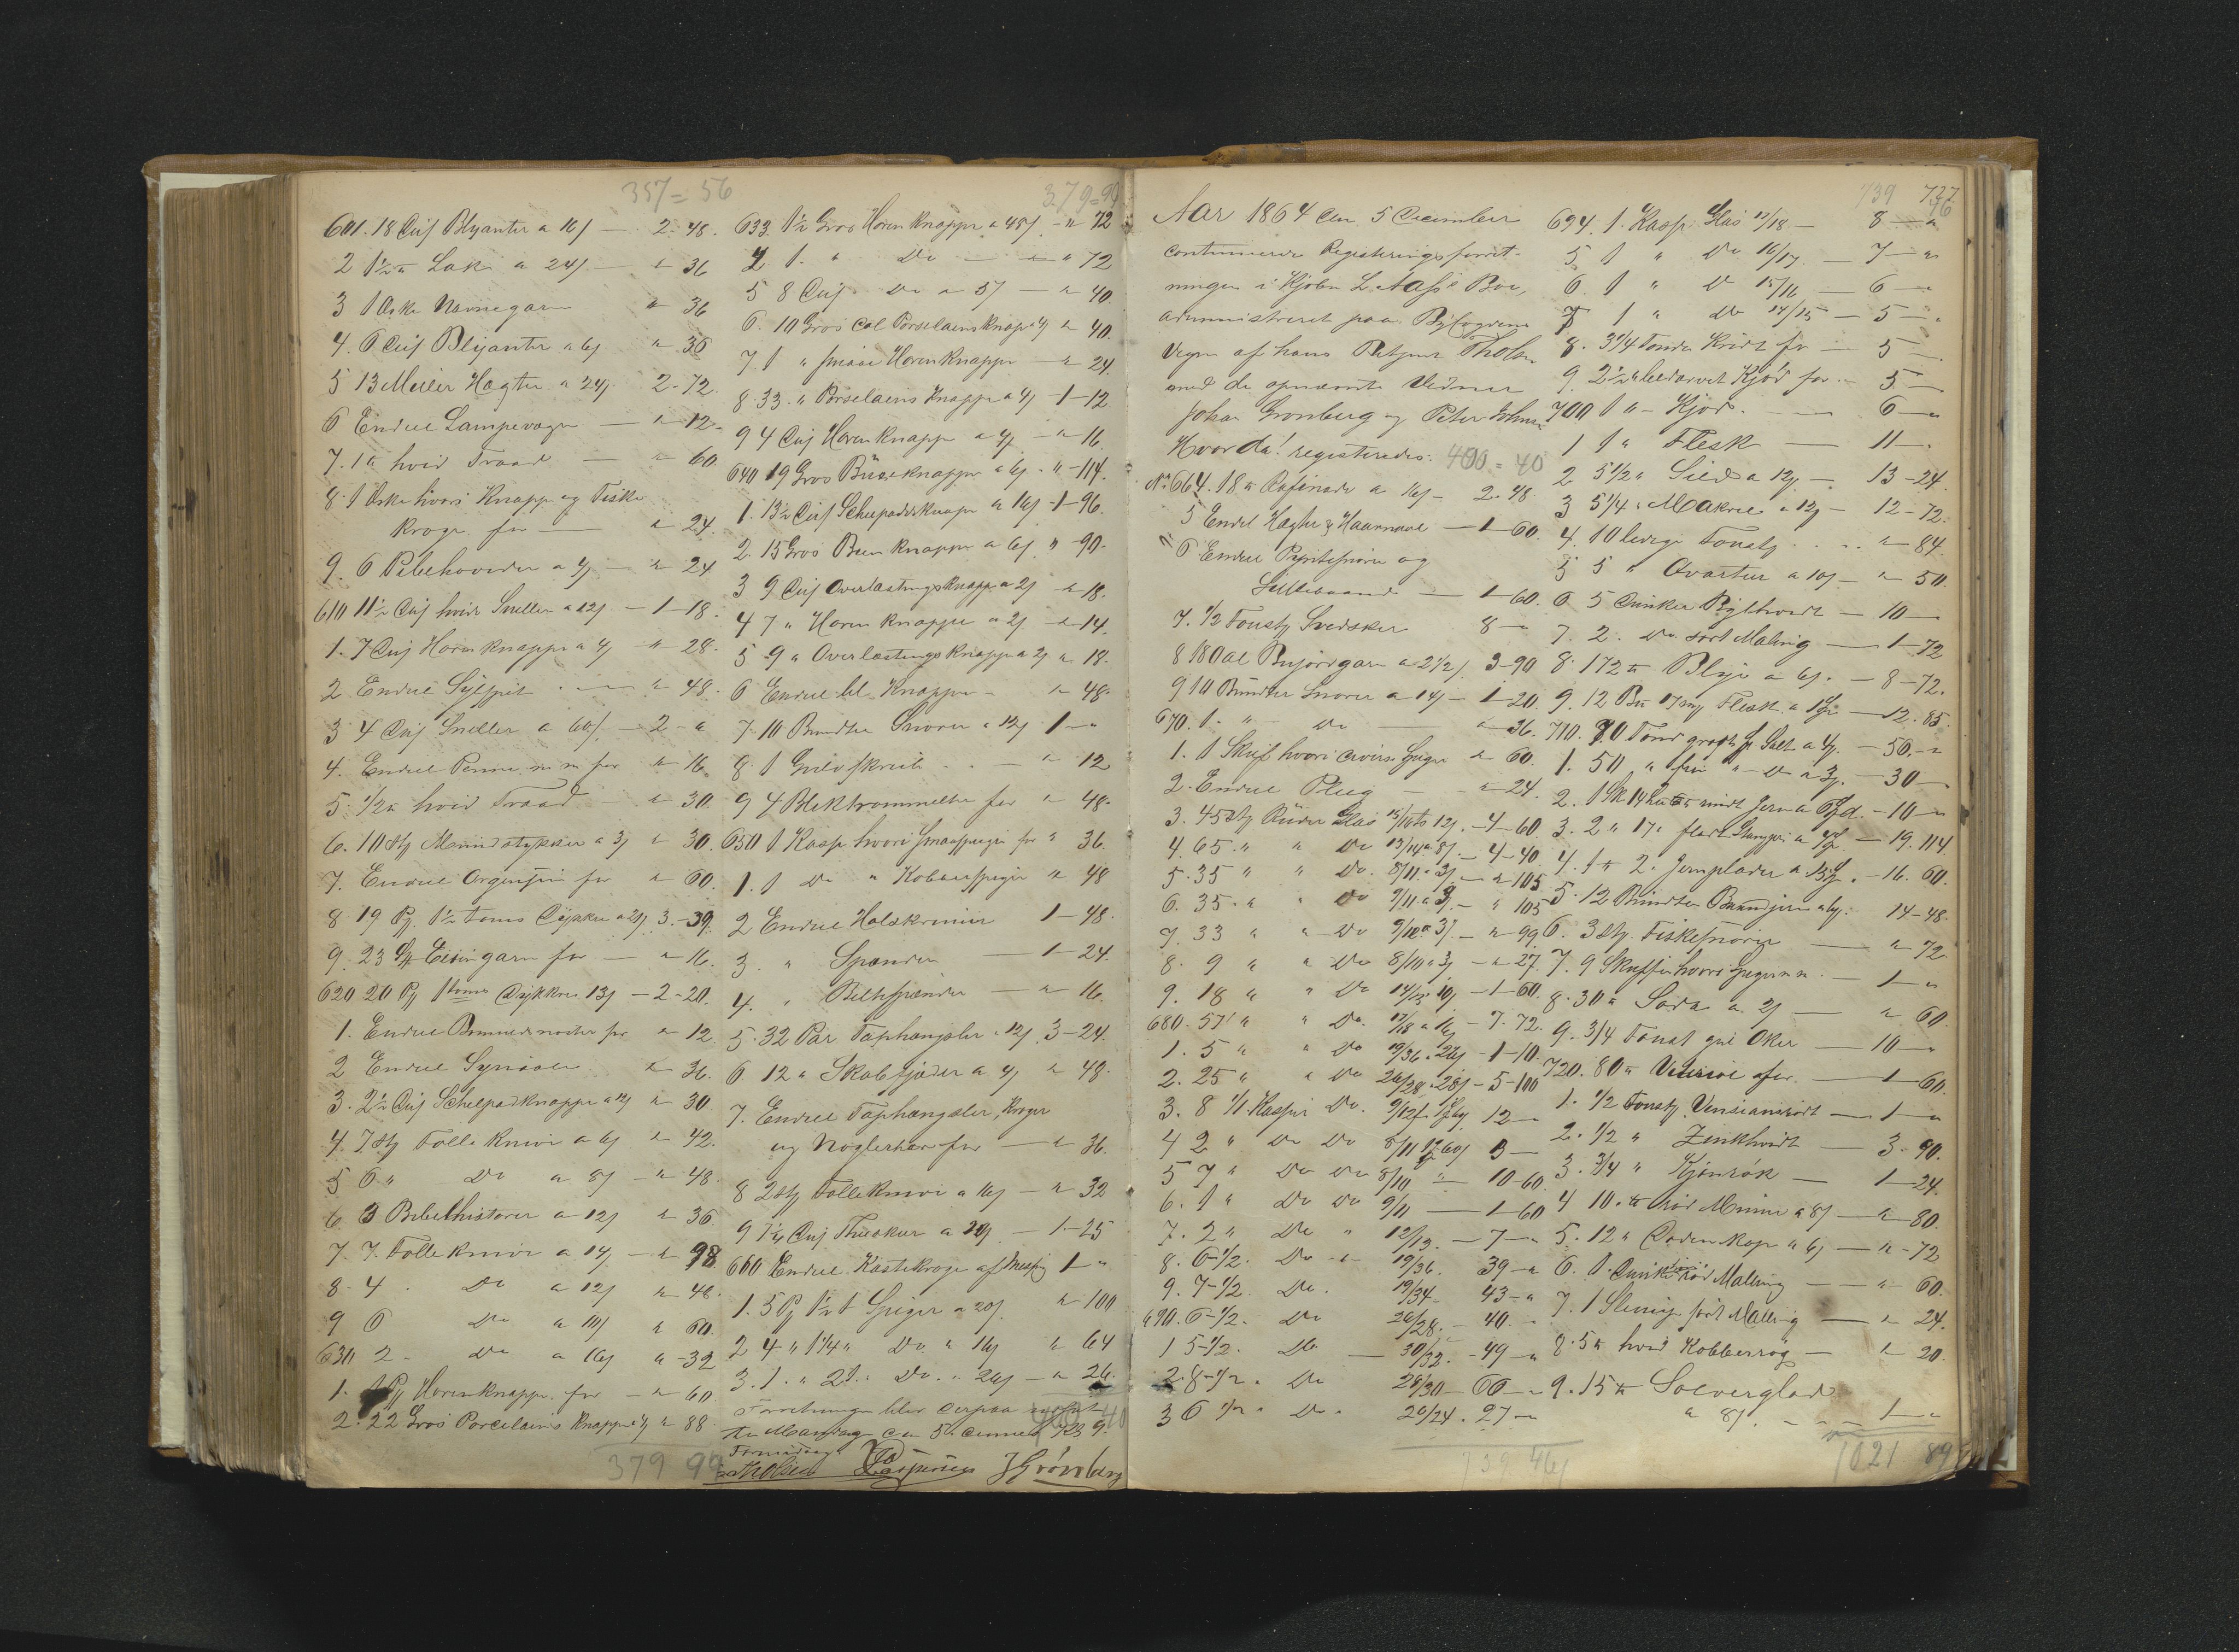 357 = 56
601. 18 Dus Blyanter a 16 s — 2. 48.
2 1½ ℔ Lak a 24 s — " 36
3 1 Æske Navnegarn " 36
4. 6 Dus Blyanter a 6 s " 36
5 13 Meiler Hægter a 24 s 2-72.
6 Endeel Lampevæger — " 12
7. 1 ℔ hvid Traad — " 60.
8. 1 Æske hvori Knapper og Fiske
kroge for — " 24.
9. 6 Pibehoveder a 4 s — " 24
610 11½ Dus hvide Sneller a 12 s — 1-18.
1. 7 Dus Hornknapper a 4 s " 28.
2 Endeel " 48.
3 4 Dus Sneller a 60 s — 2 - "
4. Endeel Penne m m for " 16.
5. ½ ℔ hvid Traad — " 30.
6. 10 Stk Mundstykker a 3 s " 30.
7. Endeel for " 60.
8 19 Pk 1½ toms Dykker a 21 s 3.-39.
9. 23 garn for — " 16.
620 20 Pk 1 toms Dykker 13 s — 2-20.
1. Endeel for " 12
2 Endeel Synaaler " 36.
3. 2½ Dus Schelpadknapper a 12 s " 30
4. 7 Stk Follekniver a 6 s " 42.
5 6 " Do a 8 s — " 48.
6 3 Bibelhistorier a 12 s " 36.
7. 7. Follekniver a 14 s — " 98
8. 4 . Do a 12 s " 48.
9 6 Do a 10 s " 60.
630 2 - Do a 16 s " -32
1. 1 Pk Hornknapper for — " 60
2. 22 Gros Porcelains Knapper a 4 s " 88.
379 99
379=99
633. 1½ Gros Horn Knapper a 48 s - " 72
4 1. " Do — " 72
5 8 Dus Do a 5 s — " 40.
6. 10 Gros Col Porselains Knap a 4 s " 40.
7. 1 " smaae Horn Knapper — " 24.
8. 33. " Porselains Knapper a 4 s 1-12
9 4 Dus Horn Knapper a 4 s — " 16.
640 19 Gros Buxeknapper a 6 s - " -114.
1. 13½ Dus Schelpadsknapper a 16 s - 1-96.
2. 15 Gros Been Knapper a 6 s " -90-
3 9 Dus Overlastings Knapper a 2 s " 18.
4 7 " Horn Knapper a 2 s " 14.
5 9 " Overlastings Knapper a 2 s " 18.
6 Endeel bl Knapper - " 48.
7. 10 Bundter Snorer a 12 s 1 - "
8. 1 — " 12
9 4 Bliktrommeler for " 48.
650 1 Kasse hvori smaaspiger for " 36.
1. 1 Do " Kobberspiger " 48
2 Endeel Halskremmer 1-48.
3. " Spænder — 1-24.
4. " Beltespænder — " 16.
5. 32 Par Taphængsler a 12 s 3-24.
6. 12 " Skabfjæder a 4 s " 48.
7. Endeel Taphængsler, Kroger
og for — " 36.
8 2 Stk Follekniver a 16 s — " 32
9 1¼ Dus Theskeer a 20 s — 1-25
660 Endeel Kastekroge af Messing 1 - "
1. 5 Pk 1½ t Spiger a 20 s " 100
2 4 " 1¼ " Do. " 16 s " 64
3. 1. " 2 t. " Do. " 26 s — " 26.
Forretningen blev derpaa
til Mandag den 5 Kl 9
400 40
Formiddag
Tholsen J Grönberg
Aar 1864 den 5 December
continueredes Registreringsforret-
ningen i Kjøbm L Aass Boe,
administreret paa Byfogdens
Vegne af hans Fuldm Tholsen
med de opnævnte Vidner
Johan Gronberg og Peter Johnsen
Hvorda! registeredes: 400 = 40
No 664. 18 ℔ Rafinade a 16 s - 2-48
5 Endel Hægter & Haarnaale — 1-60.
6 Endeel og
— 1-60.
7. ½ Tønde Svedsker 8 - "
8 180 al garn a 2½ s 3-90
9 10 Bundter Snorer a 14 s — 1-20.
670. 1. " Do " -36.
1. 1 Skuf hvori divers Spiger " 60.
2. Endeel Pleeg — " 24.
3. 45 Stk Rüder Glas 15/16 ts 12 s. -4-60.
4. 65. " " Do 13/14 a 8 s. - 4-40.
5. 35 " " Do. 8/11 a 3 s - " 105
6. 35. " " Do 9/11 a 3 s. - " 105
7. 33 " " Do 9/10 a 3 s. - " 99
8. 9 " " Do 8/10 a 3 s - " 27.
9. 18 " " Do 14/15 10 s - 1-60.
680. 57 " " Do. 17/18 a 16 s - 7. 72.
1. 5 " " Do 19/36 a 26 s - 1-10.
2. 25 " " Do 26/28 a 28 s - 5-100
3. 8 1/1 Kasser Do. 9/12 12 - "
4 2 " Do Do 8/11 3 -
5 7 " Do Do 8/10 " 10-60.
6. 1 " Do Do 9/11 — 1-60
7. 2 " Do " 12/13. — 7 - "
8. 6-1/2. Do - " 19/36. 39 - "
9. 7-1/2. Do. 19/34 - 43 - "
690. 6-1/2. Do 26/28. - 40. -
1 5-1/2. Do — 30/32. - 49 - "
2. 8-1/2 . Do 28/30 - 66 - "
3 6 1/2 " Do. 20/24. 27 - "
739 46
739 46
737
694. 1. Kasse Glas 17/18 — 8 - "
5 1 " Do 16/17. — 7 - "
6. 1 " Do 15/16 — 6 - "
7 1 " Do 14/15 — 5 - "
8. 3¼ Tønde Kridt for — 5 -
9. 2½ " bedærvet Kjød for - 5 -
700 1 " - Kjød. — 6 - "
1 1 " Flesk — 11 - "
2 5½ " Sild a 12 s — 13-24.
3 5¼ " Makrel a 12 s — 12-72.
4. 10 ledige Fousty . . . " 84.
5 5 " Qvarter a 10 s — " 50.
6. 5 Dunker Blyhvidt — 10 -
7. 2. Do. sort Maling — 1-72
8. 172 ℔ Bly a 6 s. - 8-72.
9. 12 B℔ 17 mk Flesk a — 12. 85.
710. 70 Tønd grovt Salt a — 50. - "
1. 50 " fin " Do a - 30 -
2. 1 rundt Jern a - 10 - "
3. 2 " 17 " fladt a - 19. 114
4. 1 2. Jernplader a - 16. 60.
5. 12 Bundter Baandjern a 14-48.
6. 3 Stk. Fiskesnører — " 72
7. 9 Skuffer hvori Spiger m m. — 1 - "
8. 30 ℔ Soda a. 2 s — " 60.
9. 3/4 Foust gul Oker — 10 - "
720. 80 ℔ — 1-60.
1. ½ Fousty — 1 - "
2. ½ " Zinkhvidt — 3-90.
3. 3/4 " Kjønrøk — 1-24.
4 10. ℔ rød Mønnie a 8 s — " -80.
5. 12 " Dodenkop a 6 s — " -72
6. 1. Dunk rød Maling — " 60.
7. 1 sort Maling — " 24.
8. 5 ℔ hvid Kobberrøg — " 20.
9. 15 ℔ Solverglød
a 8 s. — 1 - "
1021 89